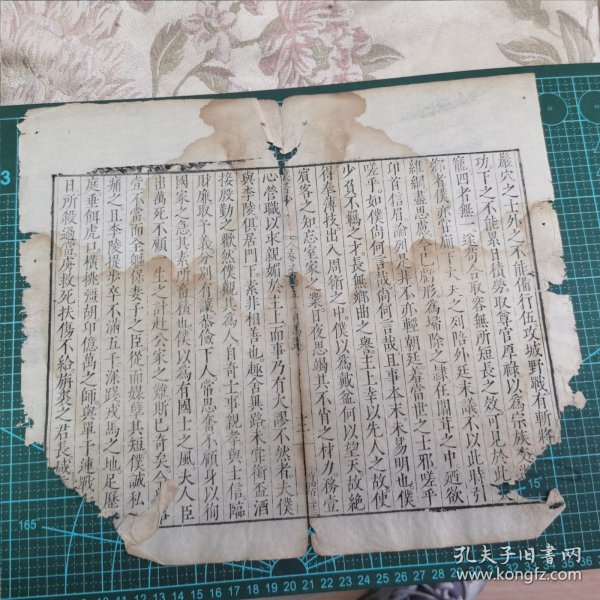 巖穴之士外之不能備行伍攻城野戰有斬將
功下之不能累日積勞取尊官厚祿以為宗族
寵四者無一遂苟合取容無所短長之效可見於此矣
者僕亦嘗廁下大夫之列陪外廷末議不以此時引
維綱盡思慮今已虧形為埽除之隸在闒茸之中迺欲
卬首信眉論列是非不亦輕朝廷羞當世之士邪嗟乎
嗟乎如僕尚何言哉尚何言哉且事本末未易明也僕
少負不羈之才長無鄉曲之譽主上幸以先人之故使
得奉薄技出入周衛之中僕以為戴盆何以望天故絶
賓客之知忘室家之業日夜思竭其不肖之材力務壹
心營職以求親媚於主上而事乃有大謬不然者夫僕
與李陵俱居門下素非相善也趣舍異路未嘗銜盃酒
接殷勤之歡然僕觀其為人自奇士事親孝與士信臨
財廉取予義分別有讓恭儉下人常思奮不顧身以徇
國家之急其素所畜積也僕以為有國士之風夫人臣
出萬死不顧一生之計赴公家之難斯已奇矣今
壹不當而全軀保妻子之臣從而媒蘖其短僕誠私
痛之且李陵提步卒不滿五千深踐戎馬之地足歷
庭垂餌虎口橫挑彊胡卬億萬之師與單于連戰
日所殺過當虜救死扶傷不給旃裘之君長咸
165
孔夫子旧书网
www.kongfz.com